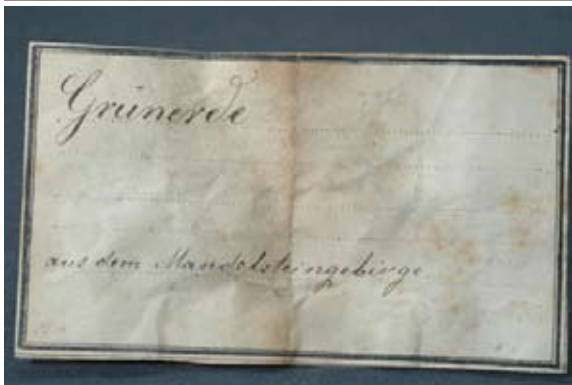 Grünerde
aus dem Mandelsteingebirge